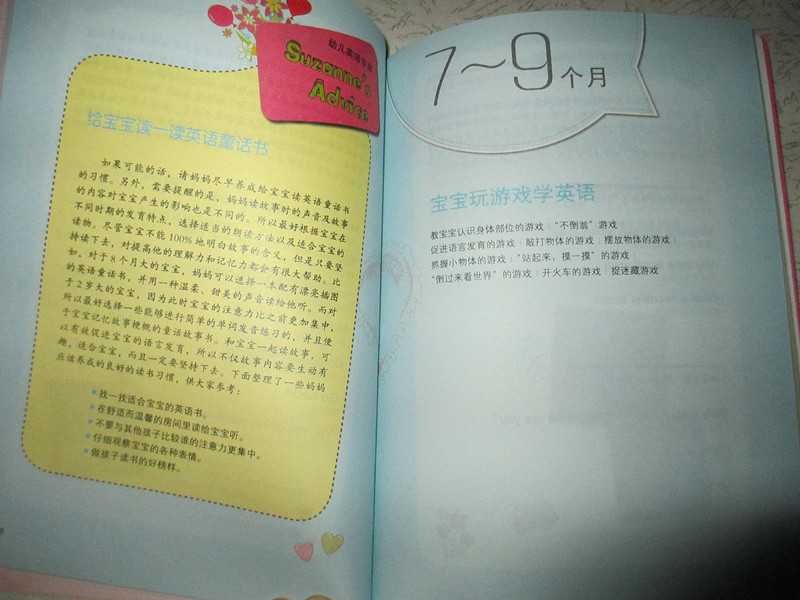 幼儿英语专家
Suzanne's
Advice
给宝宝读一读英语童话书
如果可能的话，请妈妈尽早养成给宝宝读英语童话书
的习惯。另外，需要提醒的是，妈妈读故事时的声音及故事
的内容对宝宝产生的影响也是不同的。所以最好根据宝宝在
不同时期的发育特点，选择适当的朗读方法以及适合宝宝的
读物。尽管宝宝不能100%地明白故事的含义，但是只要坚
持读下去，对提高他的理解力和记忆力都会有很大帮助。比
如，对于8个月大的宝宝，妈妈可以选择一本配有漂亮插图
的英语童话书，并用一种温柔、甜美的声音读给他听。而对
于2岁大的宝宝，因为此时宝宝的注意力比之前更加集中，
所以最好选择一些能够进行简单的单词发音练习的，并且便
于宝宝记忆故事梗概的童话故事书。和宝宝一起读故事，可
以有效促进宝宝的语言发育，所以不仅故事内容要生动有
趣，适合宝宝，而且一定要坚持下去。下面整理了一些妈妈
应该养成的良好的读书习惯，供大家参考：
找一找适合宝宝的英语书。
在舒适而温馨的房间里读给宝宝听。
不要与其他孩子比较谁的注意力更集中。
仔细观察宝宝的各种表情。
做孩子读书的好榜样。
7～9个月
宝宝玩游戏学英语
教宝宝认识身体部位的游戏 | “不倒翁”游戏
促进语言发育的游戏 | 敲打物体的游戏 | 摆放物体的游戏
抓握小物体的游戏 | “站起来，摸一摸”的游戏
“倒过来看世界”的游戏 | 开火车的游戏 | 捉迷藏游戏